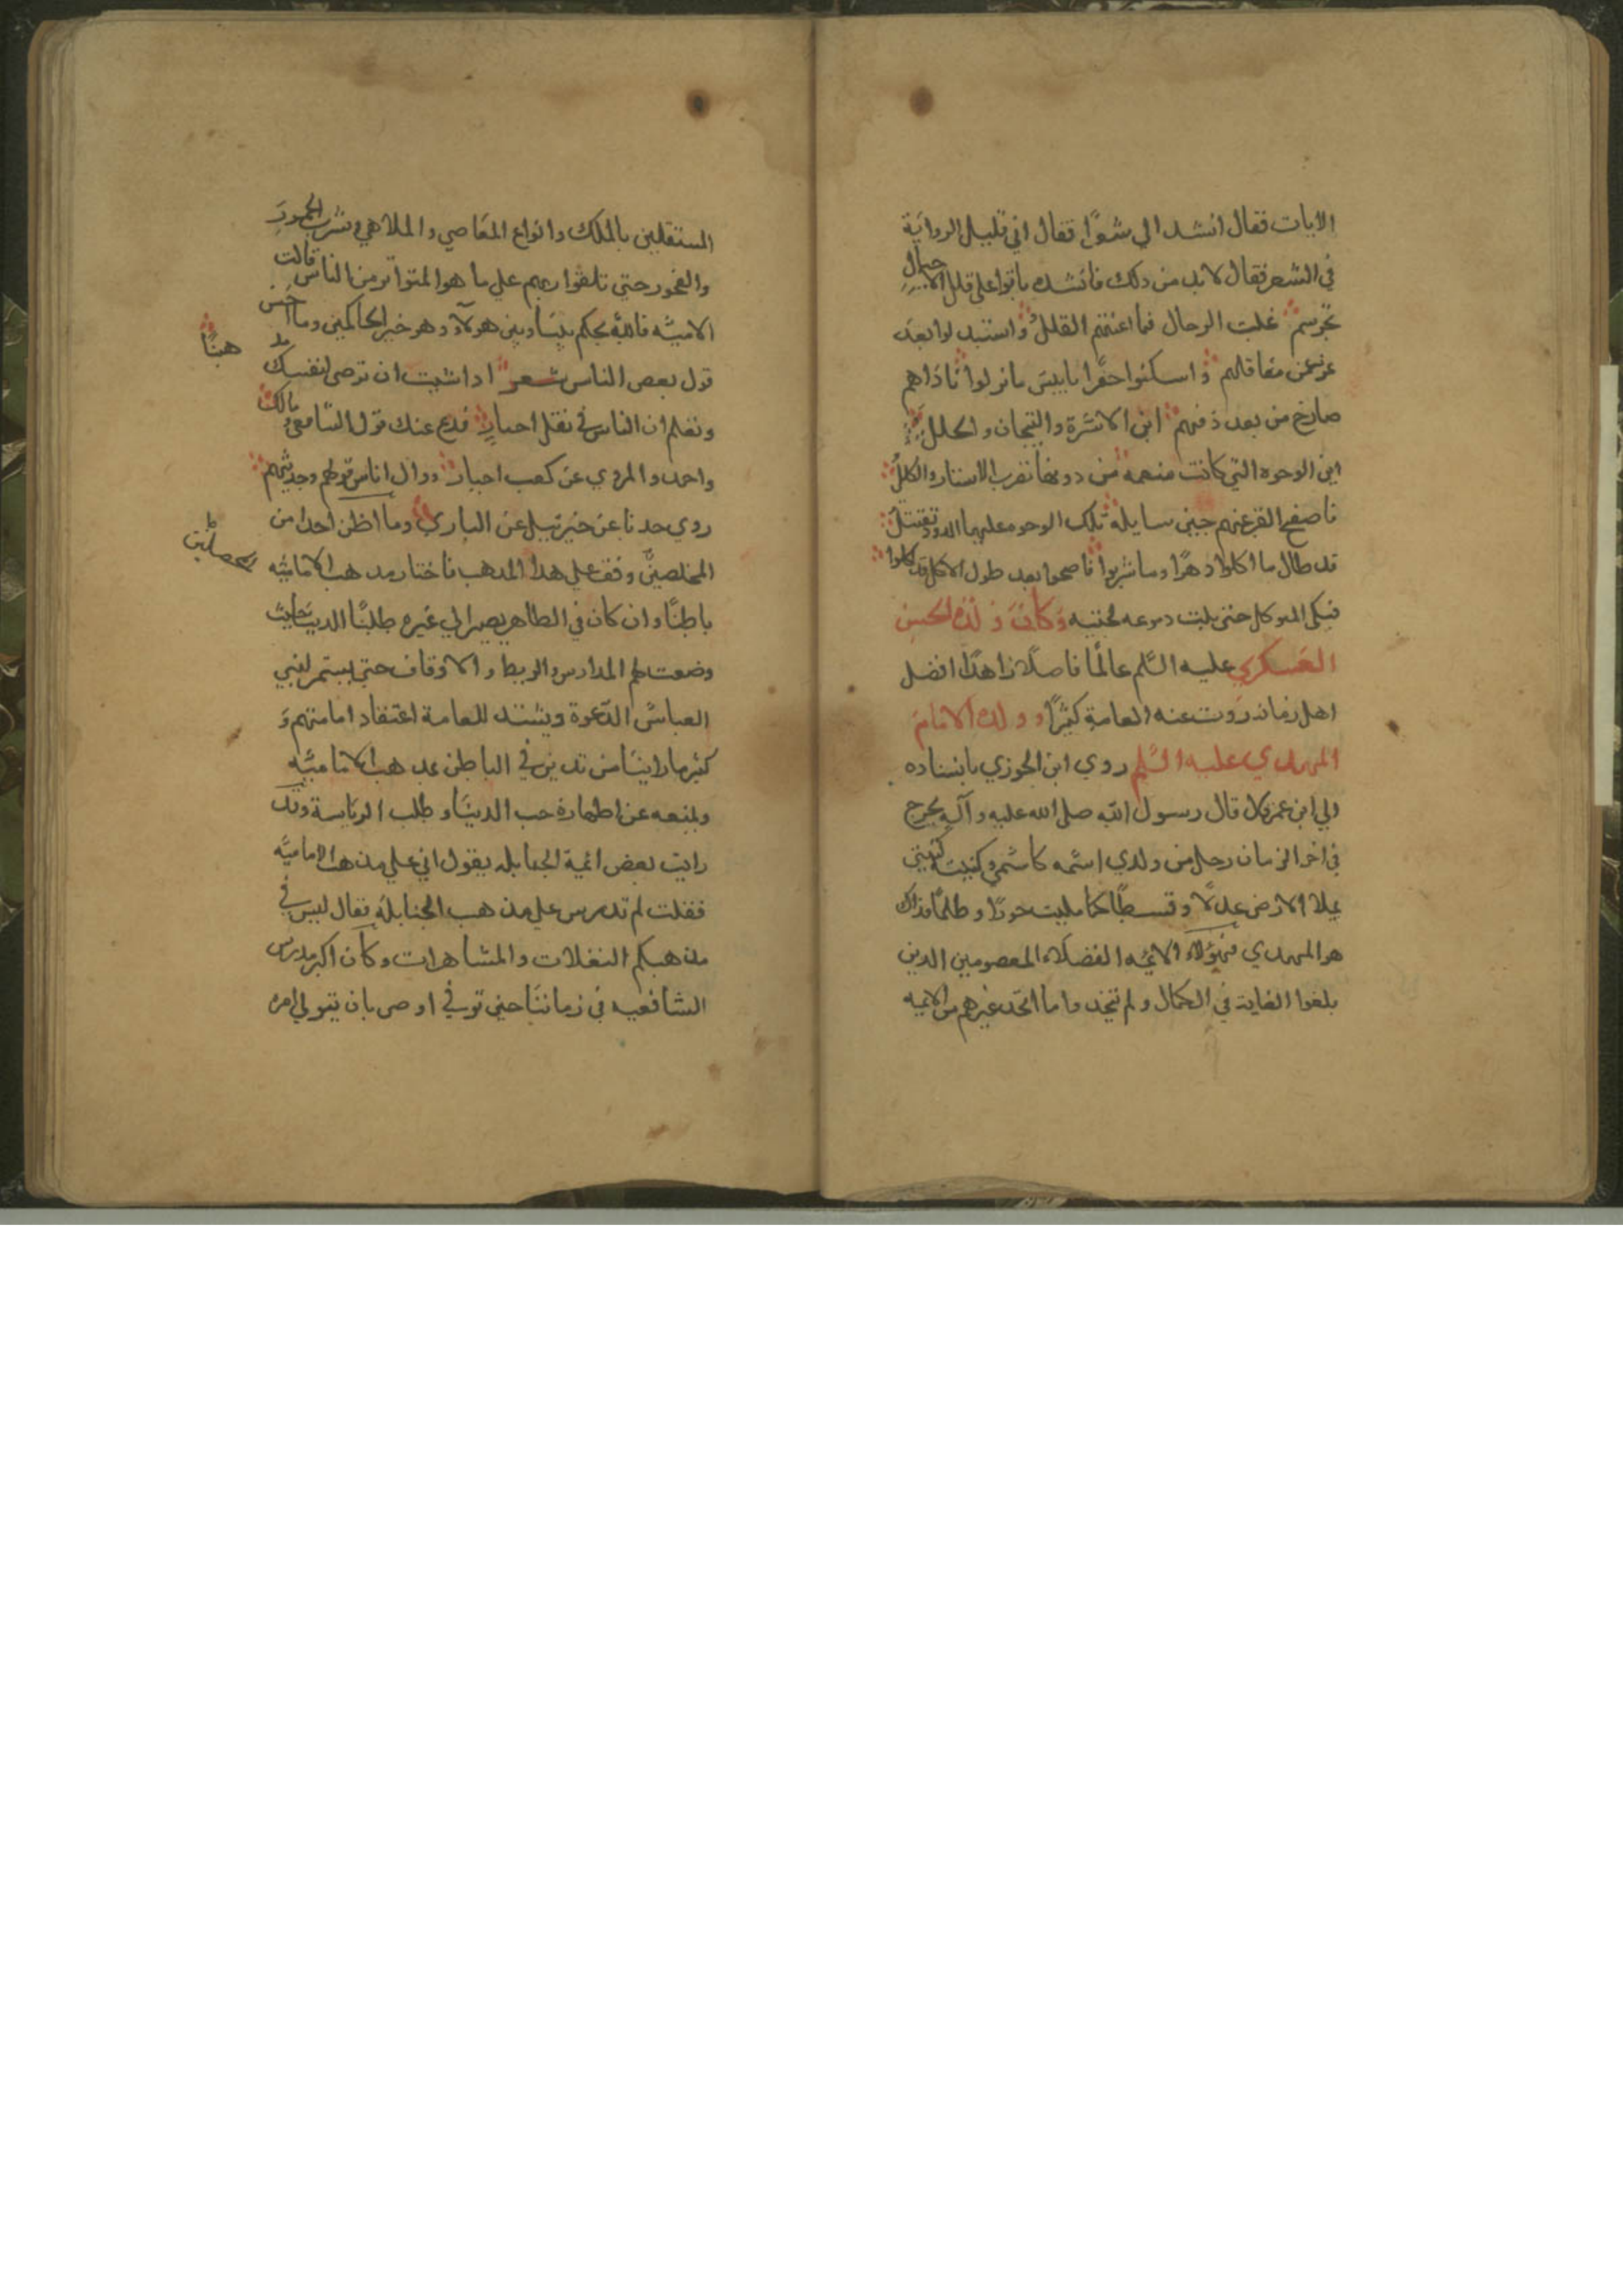 الابات فقال انشد الي شعرًا فقال اني قليل الرواية
في الشعر فقال لا بد من ذلك فانشده باتوا على قلل الاجبال
تحرسهم غلب الرجال فما اغنتهم القلل واستنزلوا بعد
عز من معاقلهم واسكنوا حفرًا يا بيس ما نزلوا ناداهم
صارخ من بعد دفنهم اين الاسرة والتيجان والحلل
اين الوجوه التي كانت منعمة من دونها تضرب الاستار والكلل
فافصح القبر عنهم حين سايله تلك الوجوه عليها الدود تقتتل
قد طال ما اكلوا دهرًا وما شربوا فاصبحوا بعد طول الاكل قد اكلوا
فبكى المتوكل حتى بلت دموعه لحيته وكان ولده الحسن
العسكري عليه السلم عالمًا فاضلًا زاهدًا افضل
اهل زمانه روت عنه العامة كثيرًا وولده الامام
المهدي عليه السلم روي ابن الجوزي باسناده
الي ابن عمر قال قال رسول الله صلى الله عليه وآله يخرج
في اخر الزمان رجل من ولدي اسمه كاسمي وكنيته كنيتي
يملا الارض عدلًا وقسطًا كما مليت جورًا وظلمًا فذاك
هو المهدي فهؤلاء الائمه الفضلاء المعصومين الذين
بلغوا الغاية في الكمال ولم يتخذوا ما اتخذ غيرهم من الايمه
المستقلين بالملك وانواع المعاصي والملاهي وشرب الخمور
والفجور حتي تلقوا بهم علي ما هو المتواتر من الناس قالت
الاميته فالله يحكم بيننا وبين هولاء وهو خير الحاكمين وما احسن
قول بعض الناس شعر اذا شيت ان ترضى لنفسك
هبًا
وتعلم ان الناس في نقل اخبار فدع عنك قول الشافعي و مالك
واحمد والمروي عن كعب احبار ووال اناس قولهم وحديثهم
روي جدنا عن جبرئيل عن الباري وما اظن احدا من
المخلصين وقف علي هذا المذهب فاختار مذهب الاماميه
المحصلين
باطنًا وان كان في الظاهر يصير الي غيره طلبًا الدنيا حيث
وضعت لهم المدارس والربط والاوقاف حتي يستمر لبني
العباس الدعوة ويشتد للعامة اعتقاد امامتهم و
كثير ما راينا من تدين في الباطن بمذهب الاماميه
ويمنعه عن اظهاره حب الدنيا و طلب الرياسة وقد
رايت بعض ائمية الحنابلة يقول اني علي مذهب الاماميه
فقلت لم تدرس علي مذهب الحنابلة فقال ليس في
مذهبكم البغلات والمشاهرات وكان اكبر مدرس
الشافعيه في زماننا حين توفي اوصى بان يتولي امره